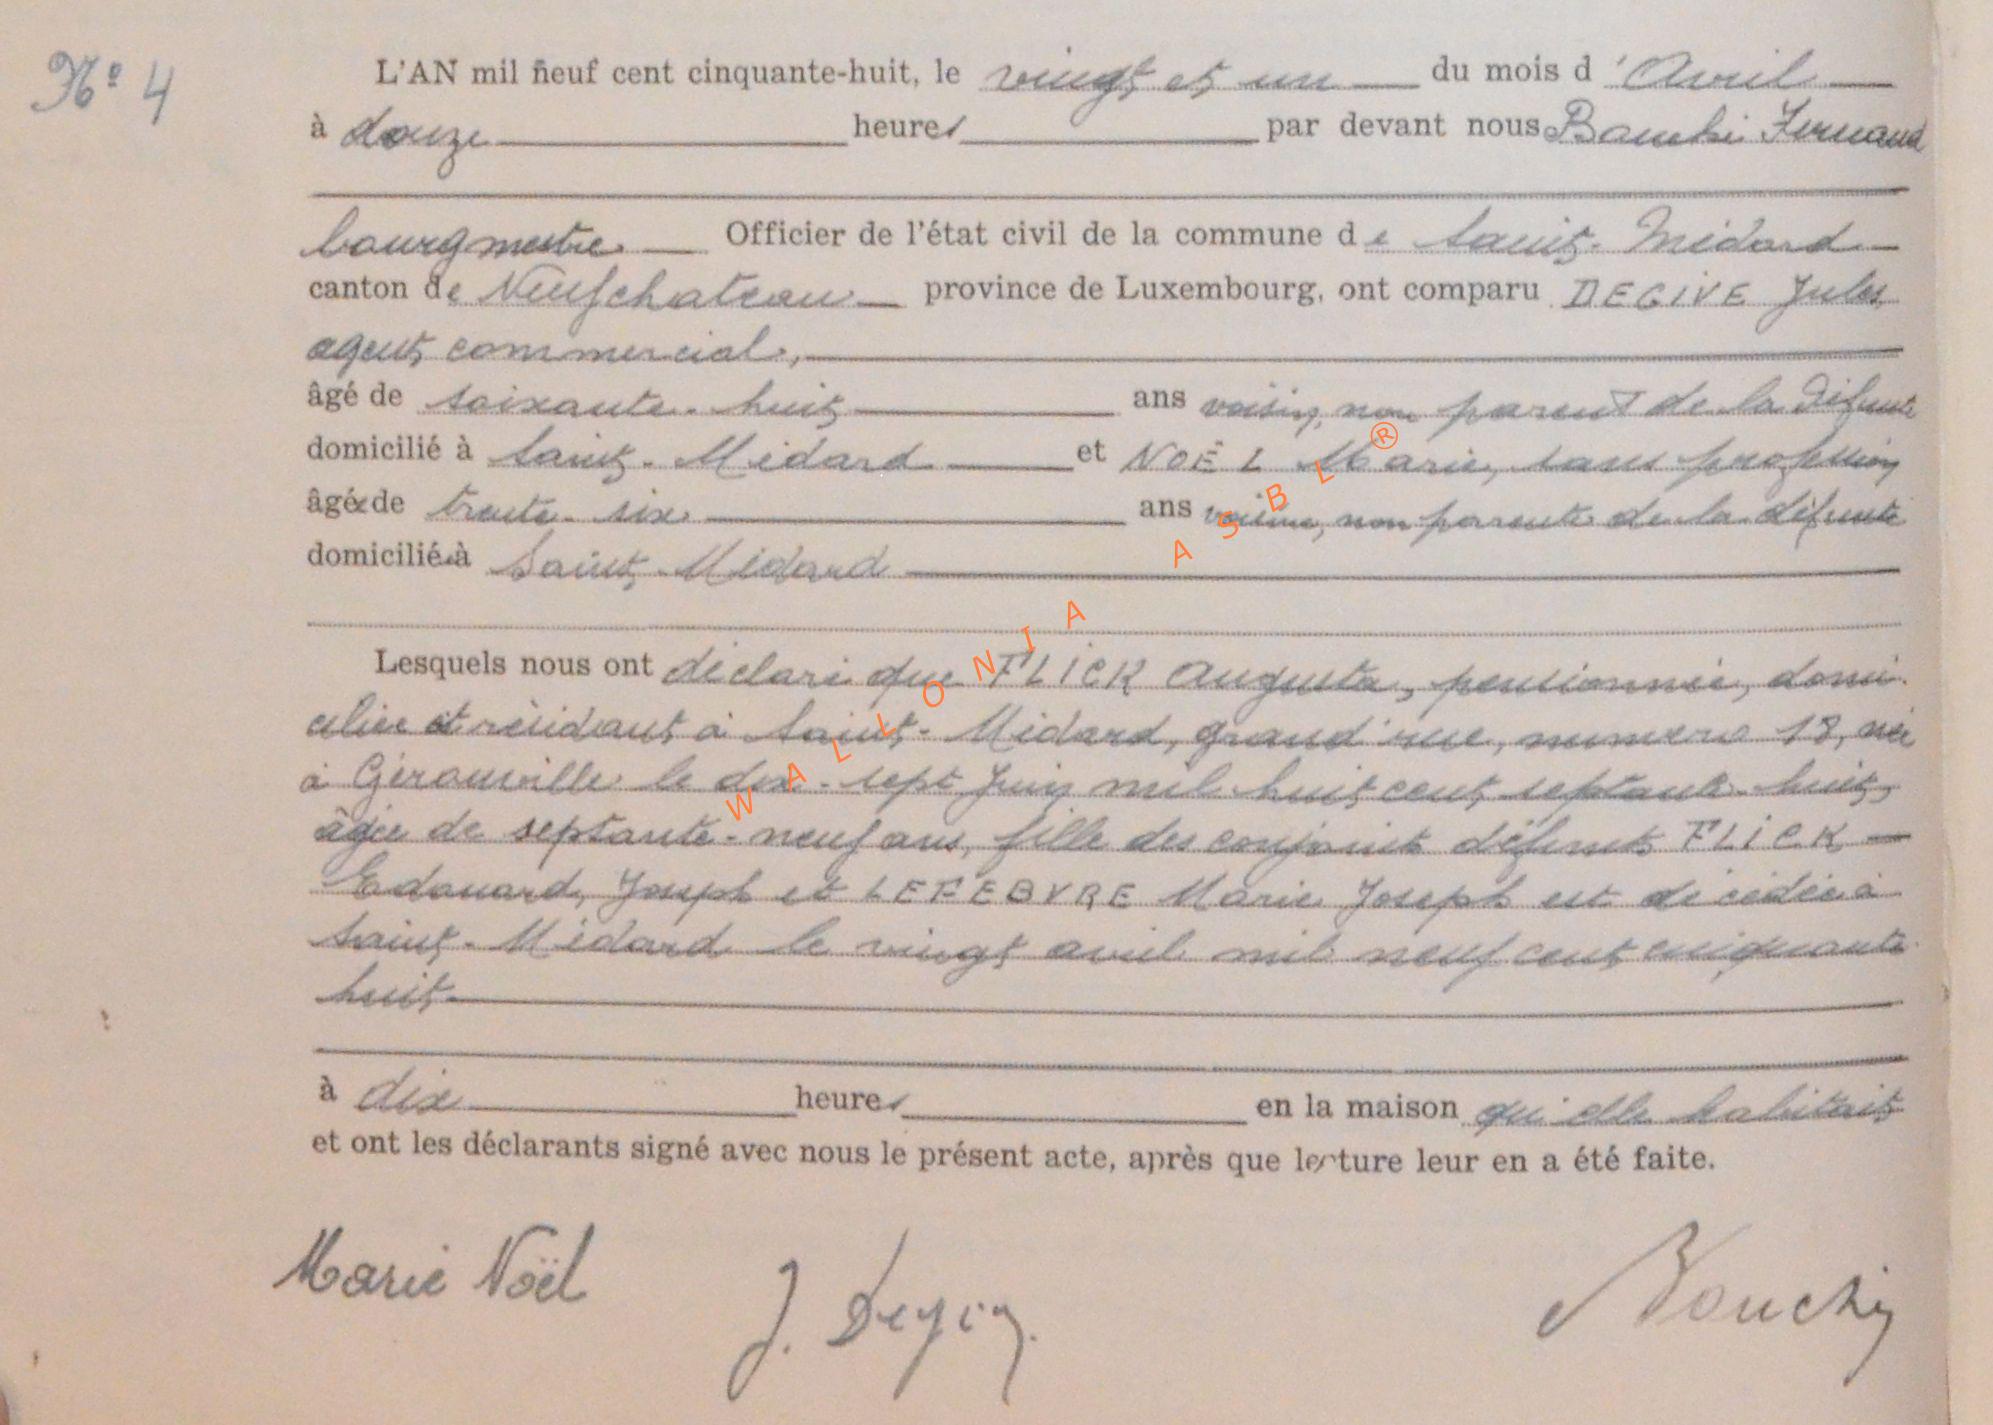 N° 4
L'AN mil neuf cent cinquante-huit, le vingt et un du mois d'Avril
à douze heures par devant nous Fernand
bourgmestre Officier de l'état civil de la commune de Saint-Médard
canton de Neufchateau province de Luxembourg, ont comparu DEGIVE Jules
agent commercial,
âgé de soixante-huit ans voisin, non parent de la défunte
domicilié à Saint-Médard et NOËL Marie, sans profession
âgée de trente-six ans voisine, non parente de la défunte
domiciliée à Saint-Médard
Lesquels nous ont déclaré que FLICK Augusta, pensionnée, domi-
ciliée et résidant à Saint-Médard, grand'rue, numéro 18, née
à Gérouville le dix-sept Juin mil huit cent septante-huit,
âgée de septante-neuf ans, fille des conjoints défunts FLICK
Edouard, Joseph et LEFEBVRE Marie Joseph est décédée à
Saint-Médard le vingt avril mil neuf cent cinquante
huit
à dix heures en la maison qu'elle habitait
et ont les déclarants signé avec nous le présent acte, après que lecture leur en a été faite.
Marie Noël J. Degive
WALLONIA ASBL ®